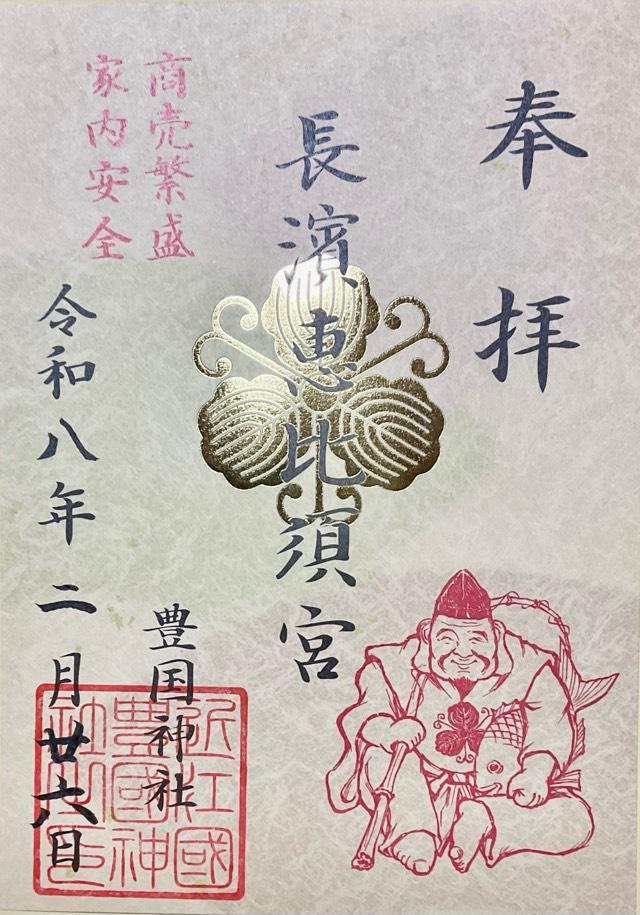 奉拝
長濱恵比須宮
商売繁盛
家内安全
豊国神社
令和八年二月廿六日
近江國
豊國神
社之印